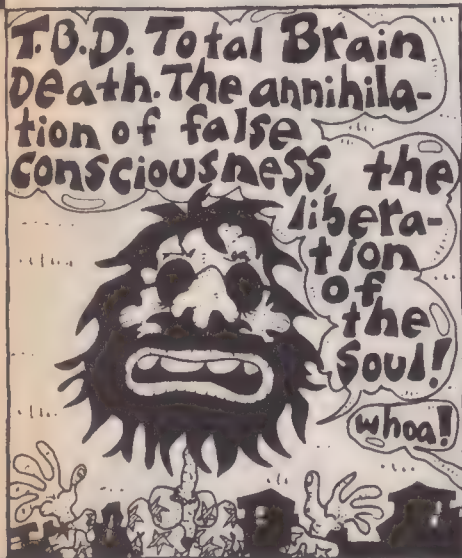 T.B.D. Total Brain
Death. The annihila-
tion of false
consciousness, the
libera-
tion
of
the
soul!
whoa!